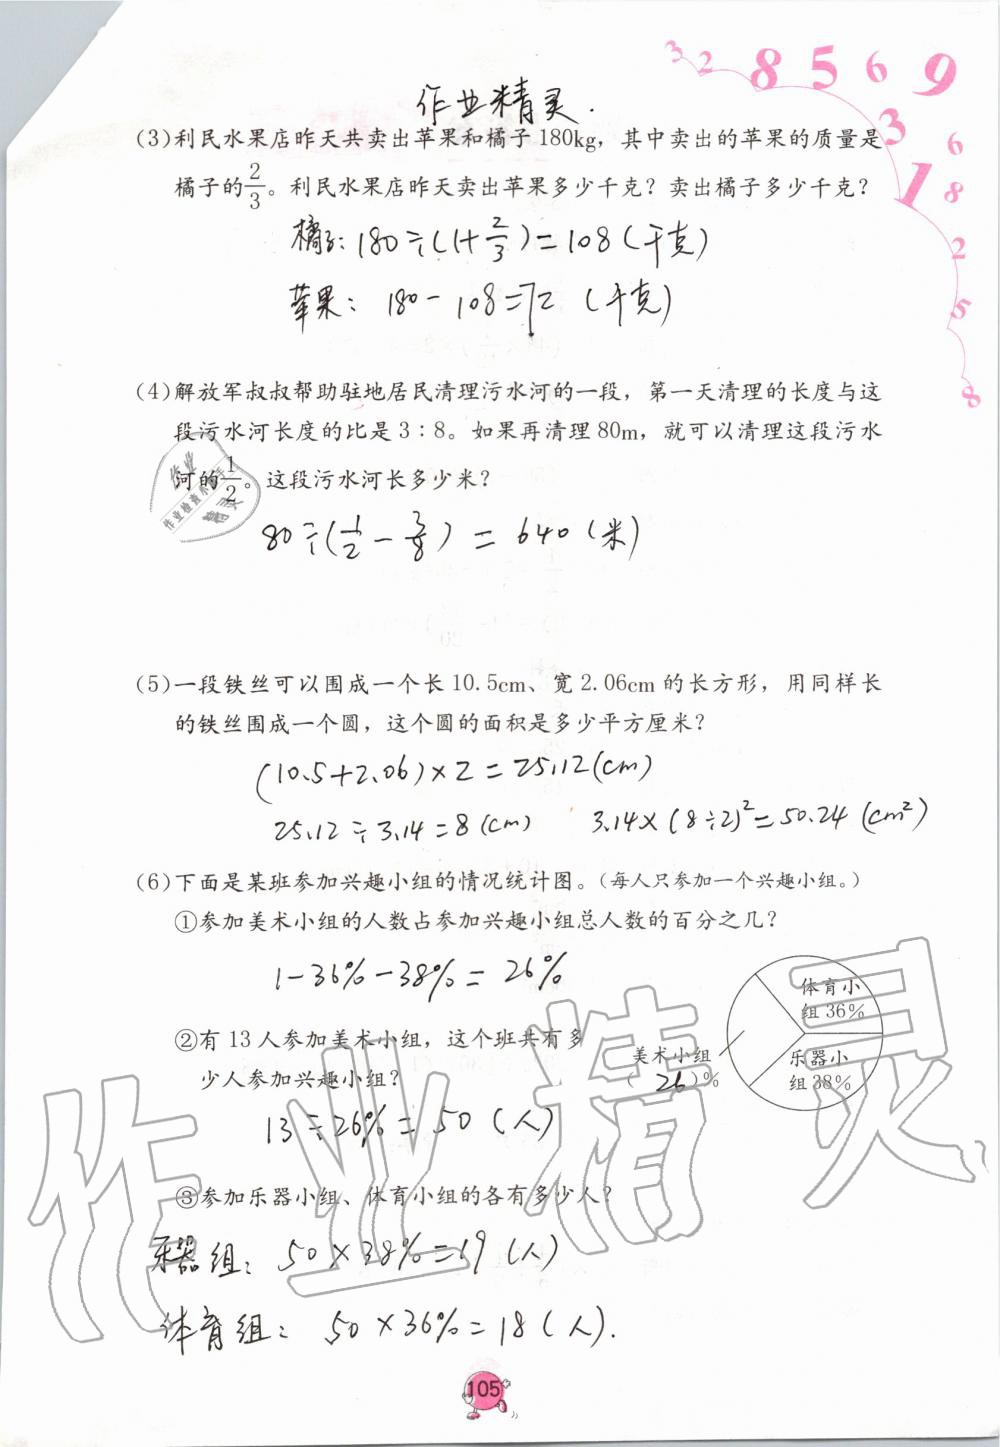 3 2 8 5 6 9
3 1 6 8 2 5 8
作业精灵.
(3)利民水果店昨天共卖出苹果和橘子180kg，其中卖出的苹果的质量是
橘子的2/3。利民水果店昨天卖出苹果多少千克？卖出橘子多少千克？
橘子：180÷(1+2/3)=108(千克)
苹果：180-108=72(千克)
(4)解放军叔叔帮助驻地居民清理污水河的一段，第一天清理的长度与这
段污水河长度的比是3：8。如果再清理80m，就可以清理这段污水
河的1/2。这段污水河长多少米？
作业
作业检查小帮手
精灵
80÷(1/2-3/8)=640(米)
(5)一段铁丝可以围成一个长10.5cm、宽2.06cm的长方形，用同样长
的铁丝围成一个圆，这个圆的面积是多少平方厘米？
(10.5+2.06)×2=25.12(cm)
25.12÷3.14=8(cm) 3.14×(8÷2)²=50.24(cm²)
(6)下面是某班参加兴趣小组的情况统计图。（每人只参加一个兴趣小组。）
①参加美术小组的人数占参加兴趣小组总人数的百分之几？
1-36%-38%=26%
体育小
组36%
②有13人参加美术小组，这个班共有多
少人参加兴趣小组？
美术小组
(26)%
乐器小
组38%
13÷26%=50(人)
③参加乐器小组、体育小组的各有多少人？
乐器组：50×38%=19(人)
体育组：50×36%=18(人).
作业精灵
105